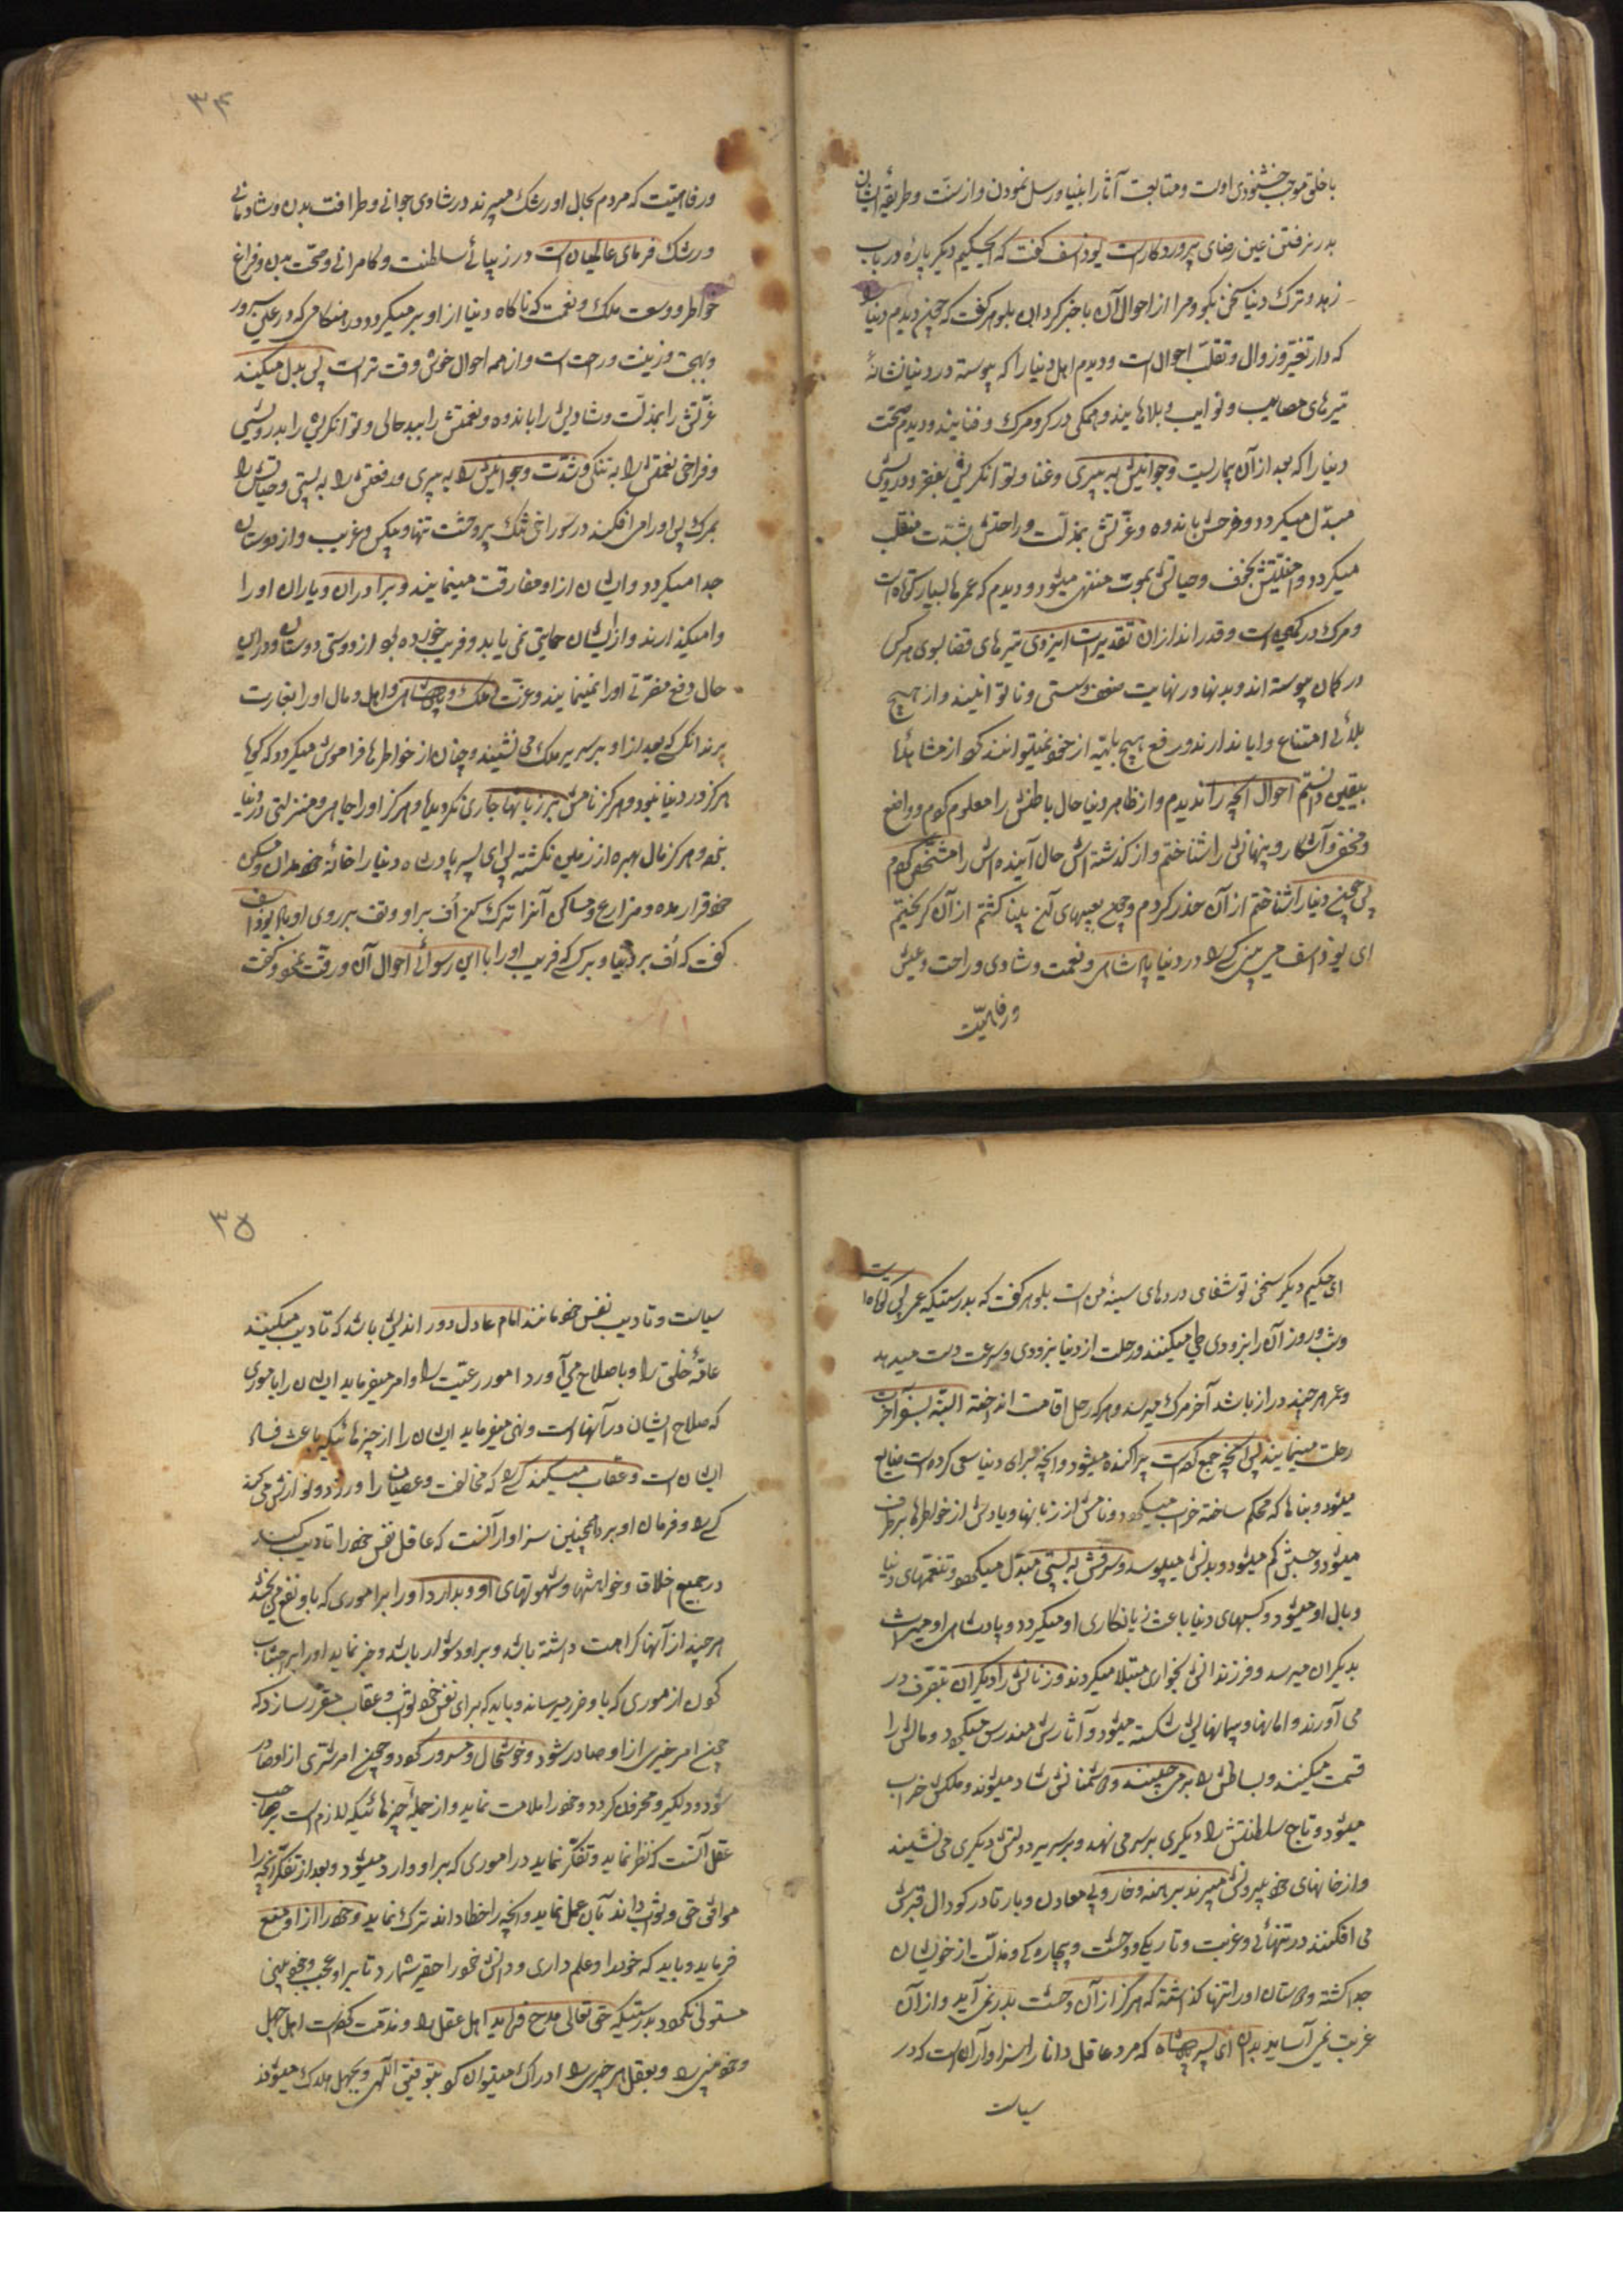 با خلق موجب خشنودی اوست و متابعت آثار انبیا و رسل نمودن و از سنت و طریقهٔ ایشان
بدر نرفتن عین رضای پروردکارست یوذاسف کفت که ایحکیم دیکر پارهٔ در باب
زهد و ترک دنیا سخن بکو و مرا از احوال آن باخبر کردان بلوهر کفت که چون دیدم دنیا
که دار تغیّر و زوال و تقلّب احوال است و دیدم اهل دنیا را که پیوسته در دنیا نشانهٔ
تیرهای مصایب و نوایب و بلاها یند و همکی در کرو مرک و فنایند و دیدم صحّت
دنیا را که بعد از آن بیماریست و جوانیش به پیری و غنا و توانکریش بفقر و درویشی
مبدّل میکردد و فرحش باندوه و عزّتش بمذلّت و راحتش بشدّت منقلب
میکردد و امنیّتش بخوف و حیاتش بموت منتهی میشود و دیدم که عمرها بسیار کوتاه است
و مرک در کمین است و قدر اندازان تقدیرات ایزدی تیرهای قضا بسوی هر کس
در کمان پیوسته اند و بدنها در نهایت ضعف و سستی و ناتوانیند و از هیچ
بلائی امتناع و ابا ندارند و رفع هیچ بلیّه از خود نمیتوانند کرد از مشاهدهٔ اینها
بیقین دانستم احوال آنچه را ندیدم و از ظاهر دنیا حال باطنش را معلوم کردم و واضع
و مخفی و آشکار و پنهانش را شناختم و از کذشته اش حال آینده اش را مشخّص کردم
پس چون دنیا را شناختم از آن حذر کردم و چون بعیبهای آن بینا کشتم از آن کریختم
ای یوذاسف می بینی کسی را در دنیا پادشاهی و نعمت و شادی و راحت و عیش
و رفاهیّت
۳۴
و رفاهیّت که مردم بحال او رشک میبرند در شادی جوانی و طرافت بدن و شادمانی
و رشک فرمای عالمیان است در زیبائی سلطنت و کامرانی و صحّت بدن و فراغ
خواطر و وسعت ملک و نعمت که ناکاه دنیا از او برمیکردد در هنکامی که در عین سرور
و بهجت و زینت و راحت است و از همه احوال خوش وقت تر است پس بدل میکند
عزّتش را بمذلّت و شادیش را باندوه و نعمتش را ببدحالی و توانکریش را بدرویشی
و فراخی نعمتش را به تنکی و شدّت و جوانیش را به پیری و رفعتش را به پستی و حیاتش را
بمرک پس او را می افکند در سوراخی تنک پر وحشت تنها و بیکس و غریب و از دوستان
جدا میکردد و ایشان از او مفارقت مینمایند و برادران و یاران او را
وامیکذارند و از ایشان حمایتی نمی یابد و فریب خورده بود از دوستی دوستان و در این
حال دفع مضرّتی از او نمینمایند و عزّت و ملک و پادشاهی و اهل و مال او را بغارت
برند آنکس که بعد از او بر سریر ملک می نشیند و چنان از خواطرها فراموش میکردد که کویا
هرکز در دنیا نبود و هرکز نامش بر زبانها جاری نکردیده و هرکز او را جاهی و منزلتی در دنیا
نبود و هرکز مال بهره از زمین نکشته پس ای پسر پادشاه دنیا را خانهٔ خود مدان و مسکن
خود قرار مده و مزارع و مساکن آنرا ترک کن اُف بر او و تف بر روی او باد یوذاسف
کفت که اُف بر دنیا و بر کسی که فریب او را با این رسوائی احوال آن و رقت نمود و کفت
ای حکیم دیکر سخن تو شفای دردهای سینهٔ من است بلوهر کفت که بدرستیکه عمر بس کوتاه است
و شب و روز آن را بزودی طی میکنند و رحلت از دنیا بزودی و سرعت دست میدهد
و عمر هر چند دراز باشد آخر مرک میرسد و هر که رحل اقامت انداخته البته بسفر آخرت
رحلت مینماید پس آنچه جمع کرده است پراکنده میشود و آنچه برای دنیا سعی کرده است ضایع
میشود و بناها که محکم ساخته خراب میکردد و نامش از زبانها و یادش از خواطرها برطرف
میشود و حسبش کم میشود و بدنش میپوسد و شرفش به پستی مبدّل میکردد و نعمتهای دنیا
وبال او میشود و کسبهای دنیا باعث زیانکاری او میکردد و پادشاهی او میراث
بدیکران میرسد و فرزندانش بخواری مبتلا میکردند و زنانش را دیکران بتصرّف در
می آورند و امانها و پیمانهایش شکسته میشود و آثارش مندرس میکردد و مالش را
قسمت میکنند و بساطش را برمی چینند و دشمنانش شاد میشوند و ملکش خراب
میشود و تاج سلطنتش را دیکری بر سر می نهد و بر سریر دولتش دیکری می نشیند
و از خانهای خود بیرونش میبرند برهنه و خوار و بی معاون و یار تا در کودال قبرش
می افکنند در تنهائی و غربت و تاریکی و وحشت و بیچارکی و مذلّت از خویشان
جدا کشته و دوستان او را تنها کذاشته که هرکز از آن وحشت بدر نمی آید و از آن
غربت نمی آساید بدان ای پسر پادشاه که مرد عاقل دانا را سزاوار آن است که در
سیاست
۳۵
سیاست و تادیب نفس خود مانند امام عادل دور اندیش باشد که تادیب میکند
عامّهٔ خلق را و باصلاح می آورد امور رعیّت را و امر میفرماید ایشان را باموری
که صلاح ایشان در آنهاست و نهی میفرماید ایشان را از چیزهائیکه باعث فساد
ایشان است و عقاب میکند کسی را که مخالفت و عصیان را ورزد و نوازش می کند
کسی را و فرمان او برد همچنین سزاوار آنست که عاقل نفس خود را تادیب کند
در جمیع اخلاق و خواهشها و شهوتهای او و بدارد او را بر اموری که باو نفع می بخشد
هر چند از آنها کراهت داشته باشد و بر او دشوار باشد و جبر نماید او را بر اجتناب
کردن از اموری که باو ضرر میرساند و باید که برای نفس خود ثواب و عقاب مقرّر سازد که
چون امر خیری از او صادر شود و خوشحال و مسرور کردد و چون امر شرّی از او صادر
شود دلکیر و محزون کردد و خود را ملامت نماید و از جملهٔ چیزهائیکه لازم است بر صاحب
عقل آنست که نظر نماید و تفکّر نماید در اموری که بر او وارد میشود و بعد از تفکّر آنچه را
موافق حق و ثواب داند بآن عمل نماید و آنچه را خطا داند ترک نماید و خود را از او منع
فرماید و باید که خود را و علم و رای و دانش خود را حقیر شمارد تا بر او عجب و خود بینی
مستولی نکردد بدرستیکه حق تعالی مدح فرماید اهل عقل را و مذمّت کرده است اهل جهل
و خود بینی را و بعقل هر خیری را ادراک میتوان کرد بتوفیق الهی و بجهل هلاک میشوند